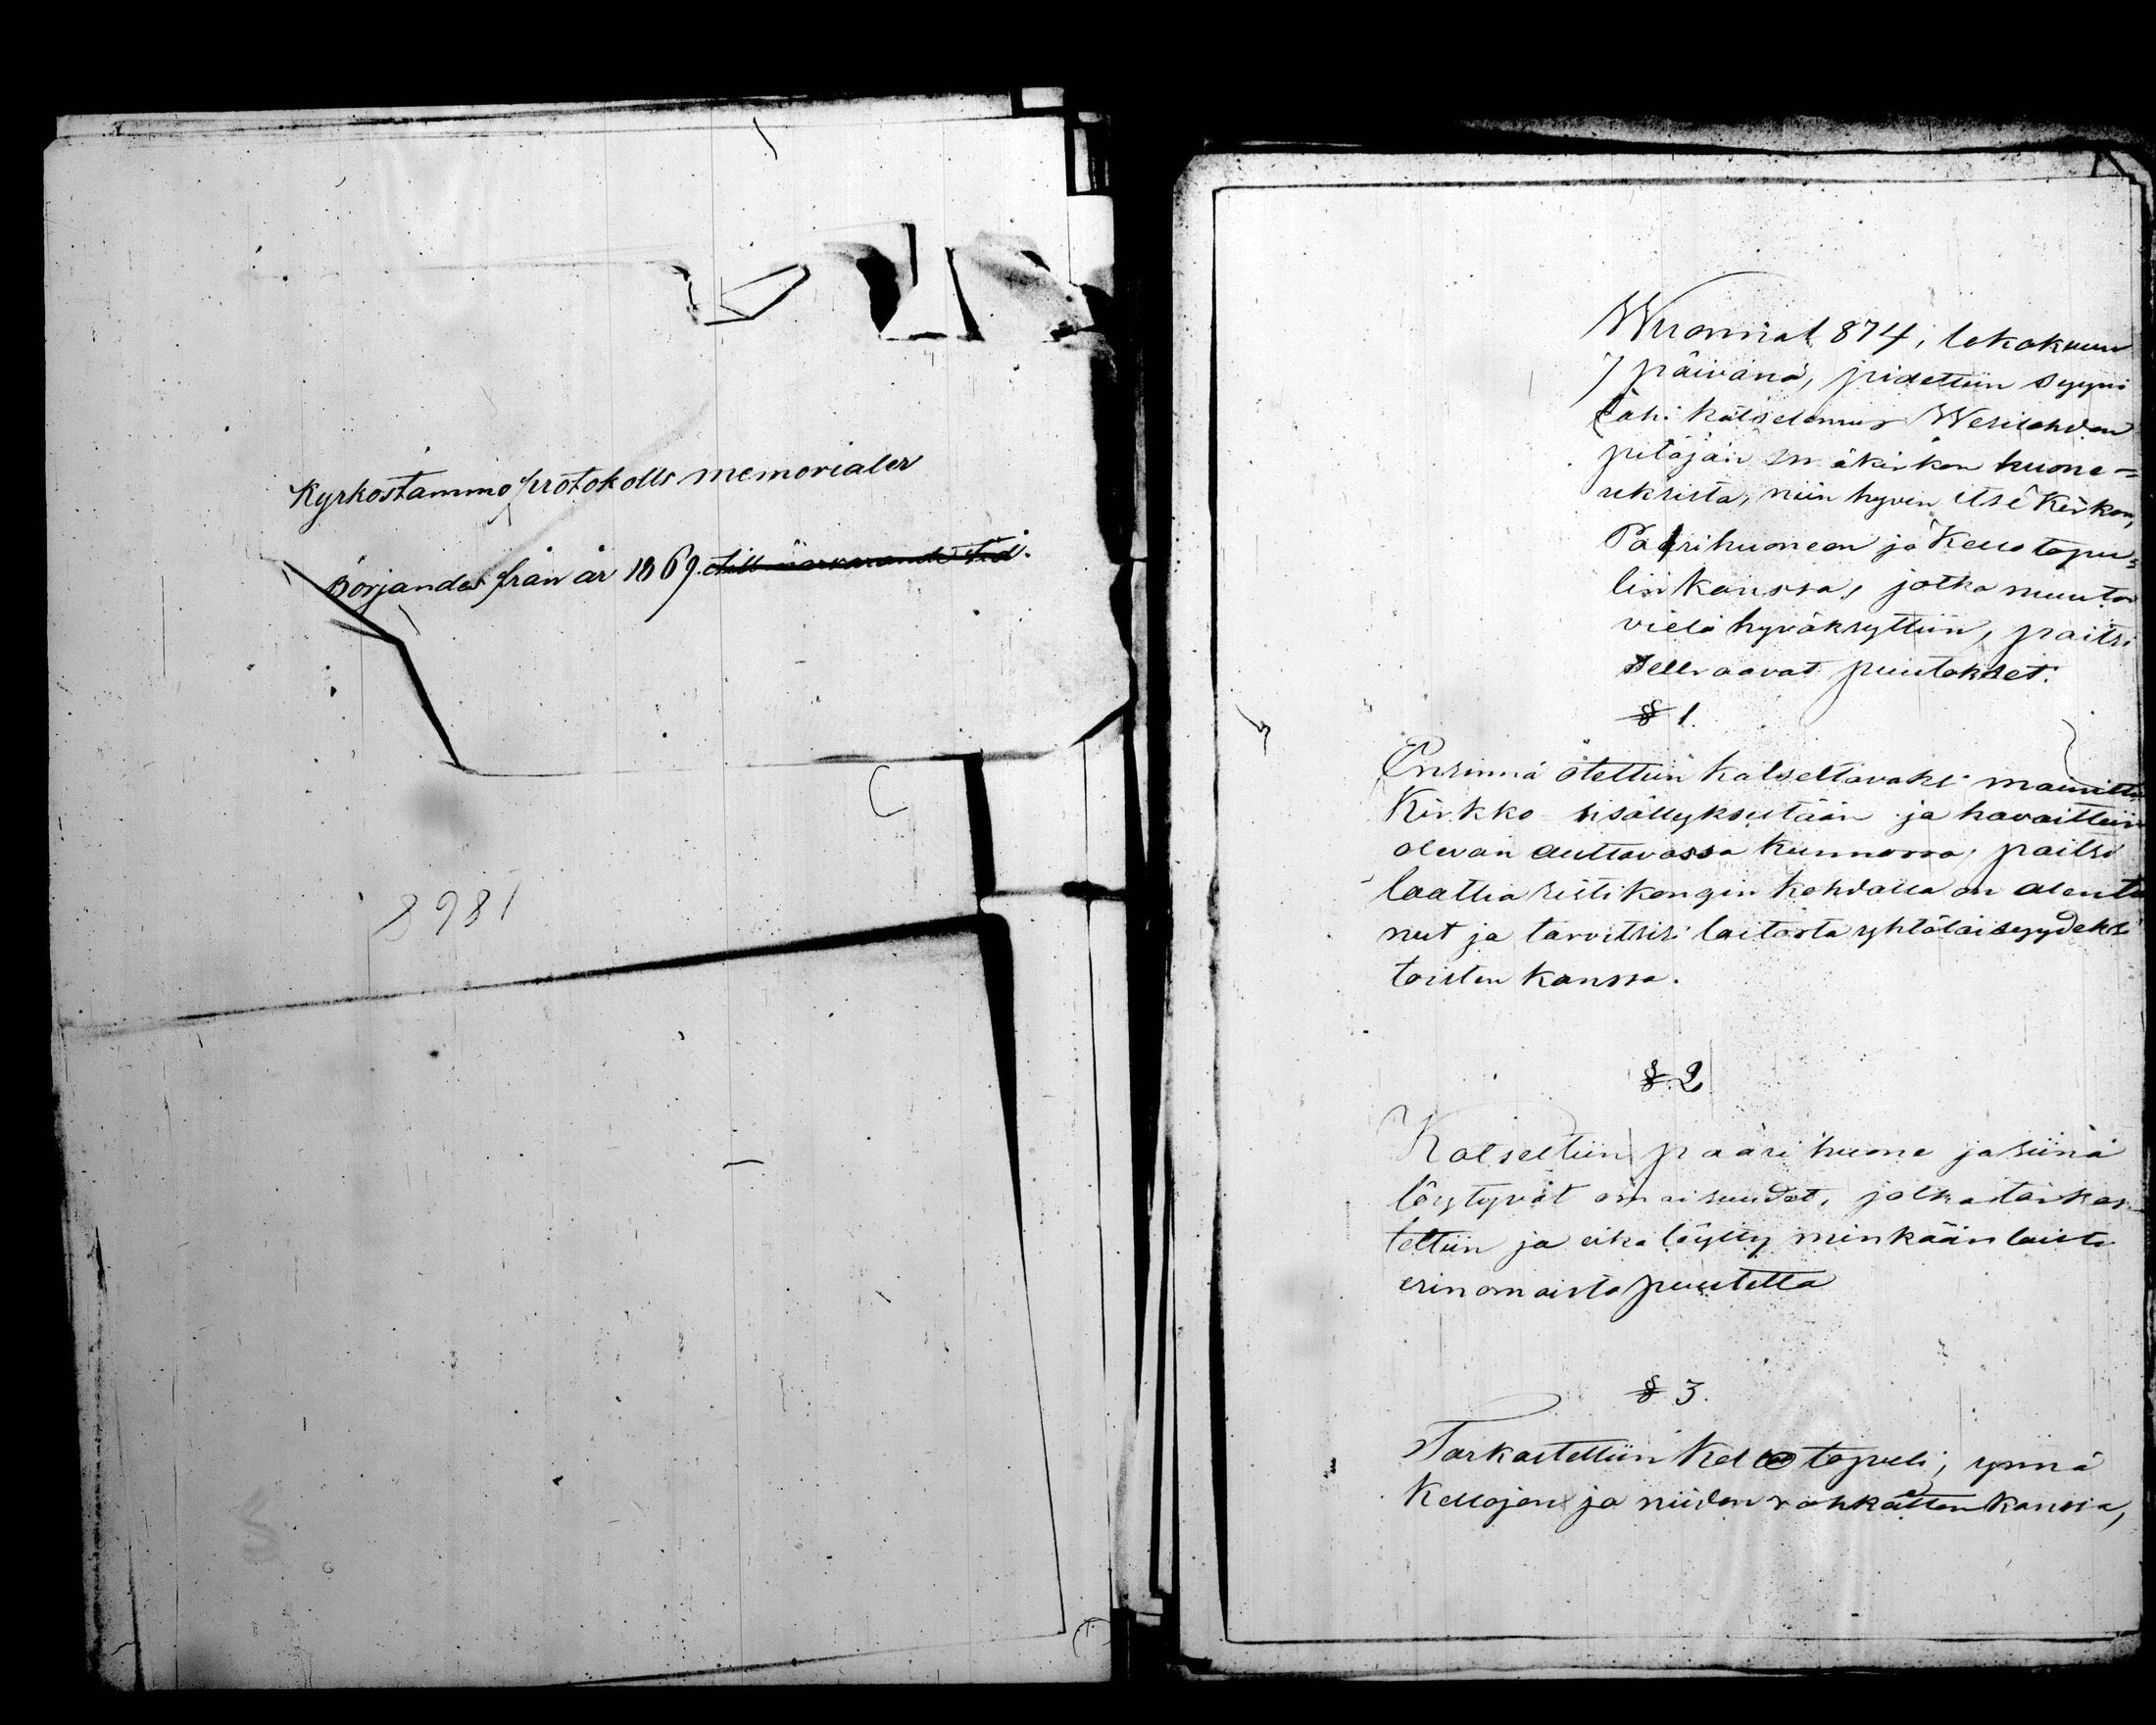 Kyrkostämmo protokolls memorialer
Börjandes från år 1869. till närvarande tid.
8981
Wuonna 1874, lokakuun
7 päivänä, pidettiin syyni
eäh. kätselemus Wesilahden
pitäjän emäkirkon huone=
uksista, niin hyven itse Kirkon,
Paarihuoneen ja Kello tapu=
lin kanssa, jotka muuton
vielä hyväksyttiin, paitsi
sellraavat puutokset.
§ 1.
Ensinnä otettiin katseltavaksi mainittu
Kirkko sisällyksistään ja havaittiin
olevan auttavassa kunnossa, paitsi
laattia ristikongin kohdalla on alentu
nut ja tarvitsisi laitosta yhtäläisyydeksi
toisten kanssa.
§. 2
Katseltiin paari huone ja siinä
löytyvät omaisuudet, jotka tarkas
teltiin ja eikä löytty minkäänlaista
erinomaista puutetta
§ 3.
Tarkasteltiin Kello tapuli, ynnä
Kellojen ja niiden rahkatten kanssa,